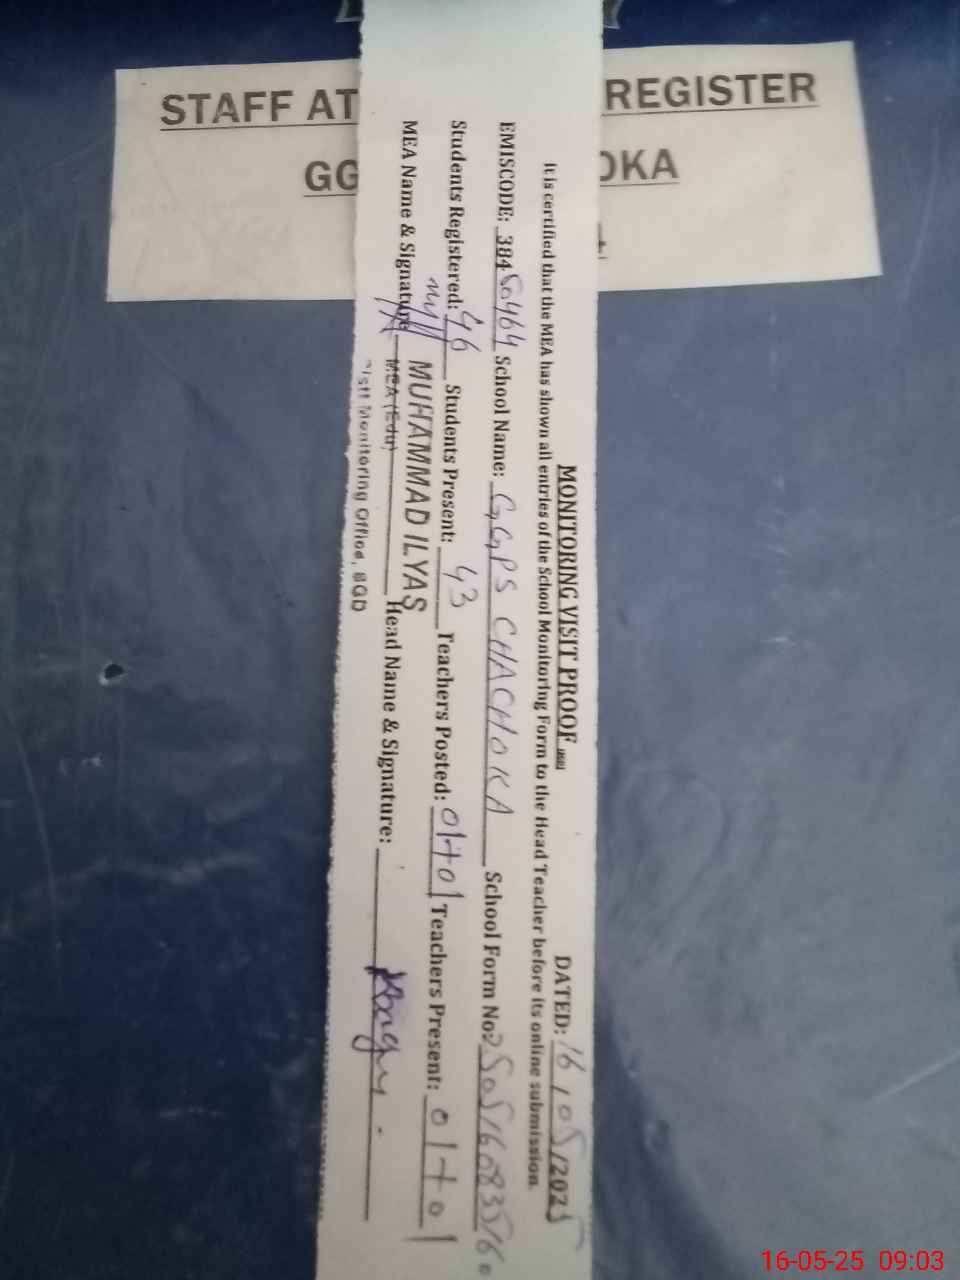 STAFF AT REGISTER
GG OKA
MONITORING VISIT PROOF DATED: 16/05/2025
It is certified that the MEA has shown all entries of the School Monitoring Form to the Head Teacher before its online submission.
EMISCODE: 38450464 School Name: GGPS CHACHOKA School Form No:
Students Registered: 46 Students Present: 43 Teachers Posted: 01+01 Teachers Present: 01+01
MEA Name & Signature Head Name & Signature:
MUHAMMAD ILYAS
MEA (Edu)
Distt Monitoring Office, SGD
16-05-25 09:03